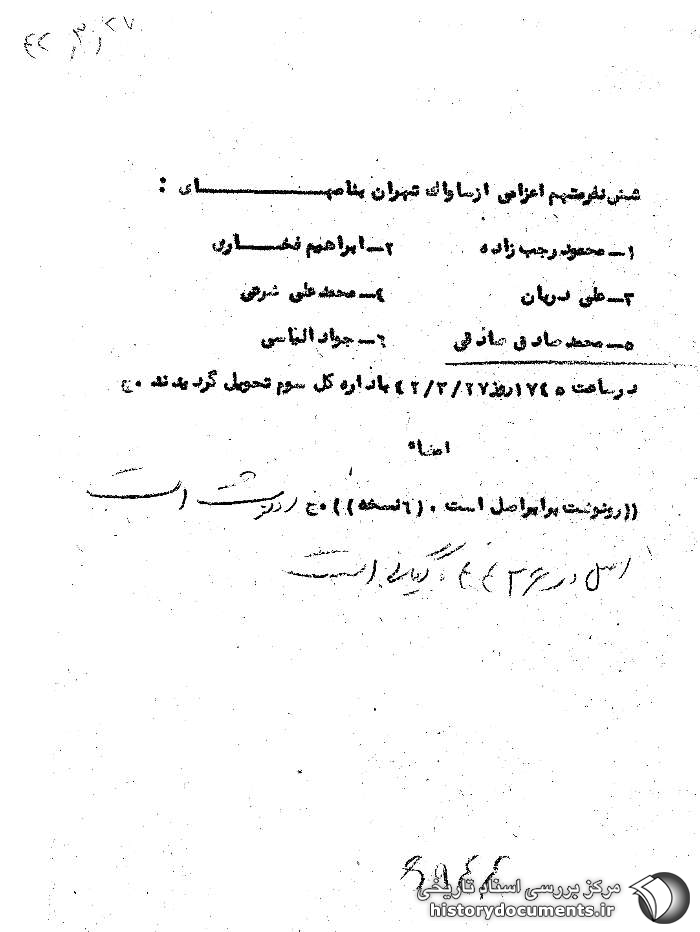 ۴۲/۳/۲۷
شش نفر متهم اعزامی از ساواک تهران بنامهای :
۱ــ محمود رجب زاده ۲ــ ابراهیم فخاری
۳ــ علی دربان ۴ــ محمد علی شرعی
۵ــ محمد صادق صادقی ۶ــ جواد الیاسی
در ساعت ۱۷۴۵ روز ۴۲/۳/۲۷ باداره کل سوم تحویل گردیدند . ج
امضاء
((رونوشت برابر اصل است . (۶نسخه)) . ج است
اصل در ۴۴۳۶ است
مرکز بررسی اسناد تاریخی
historydocuments.ir